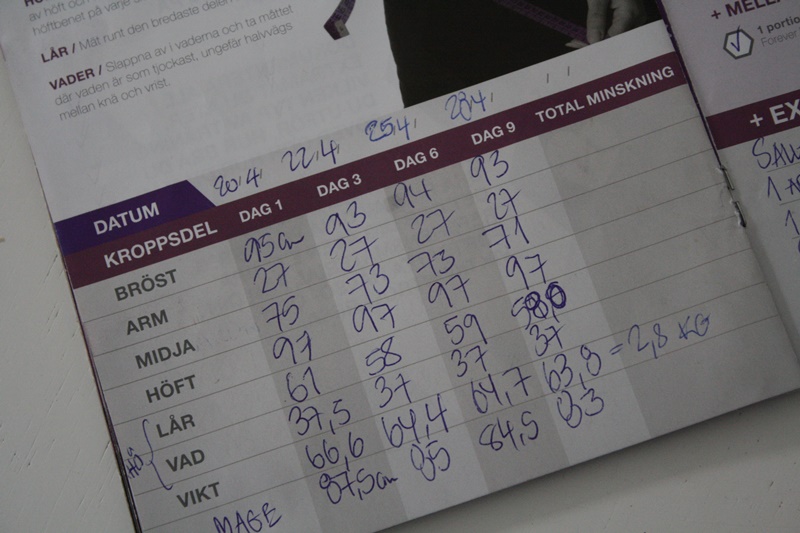 höftbenet på varje
LÅR / Mät runt den bredaste delen
VADER / Slappna av i vaderna och ta måttet
där vaden är som tjockast, ungefär halvvägs
mellan knä och vrist.
+ MELL
1 portio
Forever
+ EX
DATUM 20/4 22/4 25/4 28/4
KROPPSDEL DAG 1 DAG 3 DAG 6 DAG 9 TOTAL MINSKNING
BRÖST 95cm 93 94 93
ARM 27 27 27 27
MIDJA 75 73 73 71
HÖFT 97 97 97 97
LÅR 61 58 59 58,0
VAD 37,5 37 37 37
VIKT 66,6 64,4 64,7 63,8 = 2,8 KG
MAGE 87,5cm 85 84,5 83